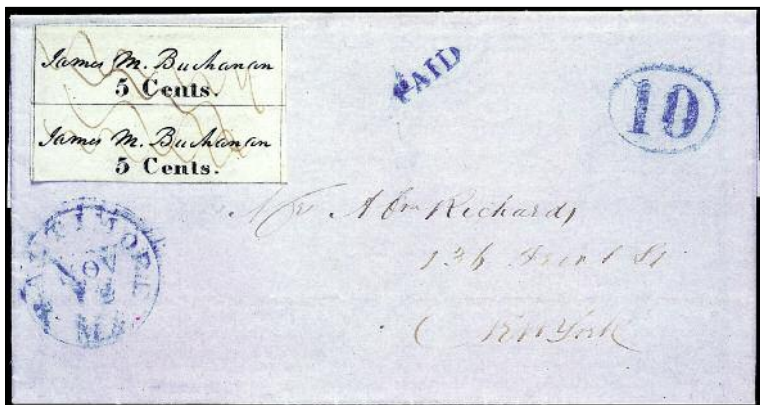 James M. Buchanan
5 Cents.
James M. Buchanan
5 Cents.
PAID
10
BALTIMORE
NOV
Md.
Richards
136 Front St
New York